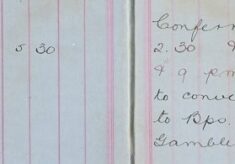 5 30
Confer
2.30
& 9 pm
to conve
to Bps.
Gamble